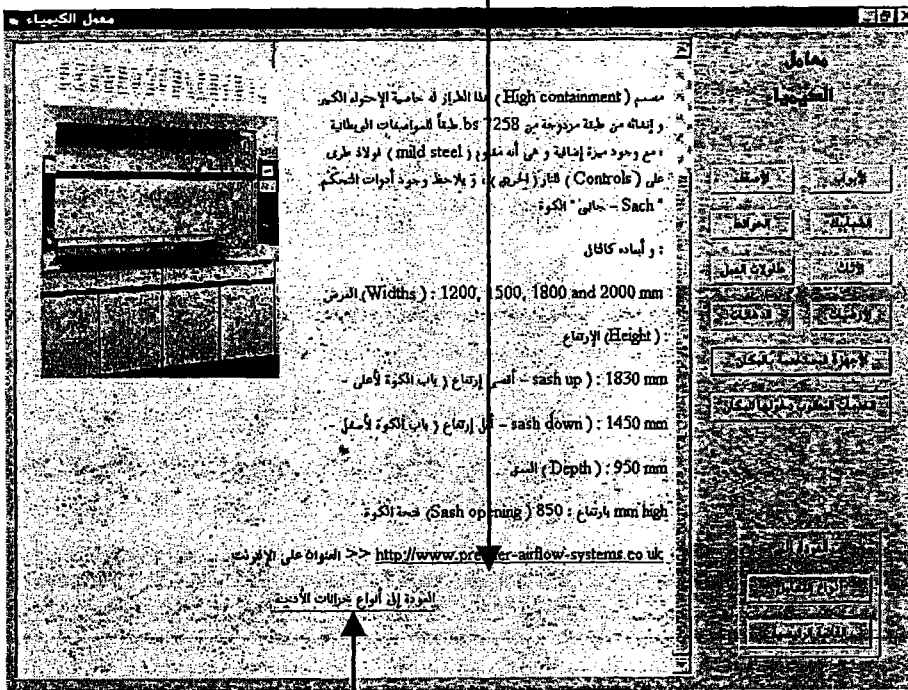 معمل الكيمياء
معامل
الكيمياء
مصمم ( High containment ) هذا الطراز له خاصية الإحتواء الكبير
و إنشائه من طبقة مزدوجة من bs 7258 طبقاً للمواصفات البريطانية
، مع وجود ميزة إضافية و هى أنه مقاوم ( mild steel ) فولاذ طرى
على ( Controls ) للنار ( الحريق ) ، و يلاحظ وجود أدوات التحكم
" Sach – جانبى " الكوة
: و أبعاده كالتالى
(Widths ) : 1200, 1500, 1800 and 2000 mm العرض
( Height) الإرتفاع
sash up ) : 1830 mm – أقصى إرتفاع ( باب الكوة لأعلى -
sash down ) : 1450 mm – أقل إرتفاع ( باب الكوة لأسفل -
(Depth ) : 950 mm العمق
mm high بارتفاع : 850 ( Sash opening) فتحة الكوة
http://www.premier-airflow-systems.co.uk << العنوان على الإنترنت
العودة إلى أنواع خزانات الأدخنة
الأبواب
الأسقف
الشبابيك
الحوائط
الأثاث
طاولات العمل
الأرضيات